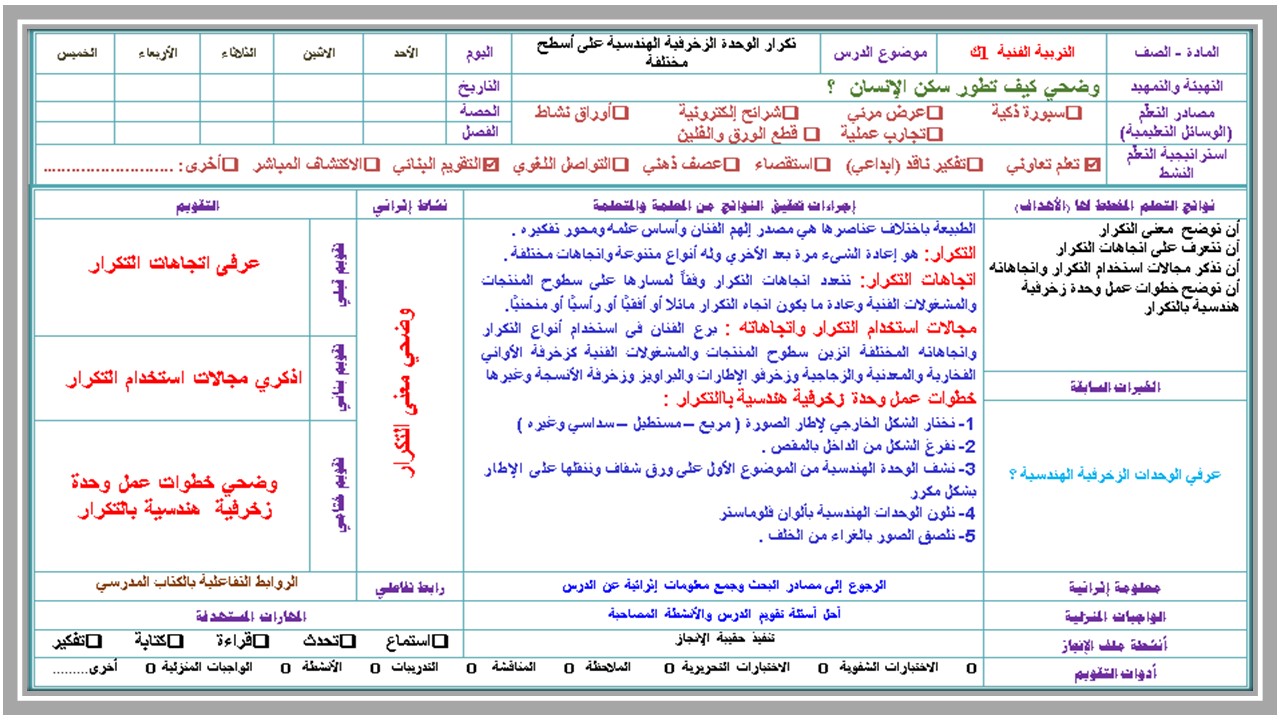 المادة - الصف
التربية الفنية 1ك
موضوع الدرس
تكرار الوحدة الزخرفية الهندسية على أسطح
مختلفة
اليوم
الأحد
الاثنين
الثلاثاء
الأربعاء
الخميس
التهيئة والتمهيد
وضحي كيف تطور سكن الإنسان ؟
التاريخ
مصادر التعلم
(الوسائل التعليمية)
سبورة ذكية
عرض مرئي
شرائح إلكترونية
أوراق نشاط
تجارب عملية
قطع الورق والفلين
الحصة
الفصل
استراتيجية التعلم
النشط
تعلم تعاوني
تفكير ناقد (ابداعي)
استقصاء
عصف ذهني
التواصل اللغوي
التقويم البنائي
الاكتشاف المباشر
أخرى: ...........................
نواتج التعلم المخطط لها (الأهداف)
إجراءات تحقيق النواتج من المعلمة والمتعلمة
نشاط إثرائي
التقويم
أن توضح معنى التكرار
أن تتعرف على اتجاهات التكرار
أن تذكر مجالات استخدام التكرار واتجاهاته
أن توضح خطوات عمل وحدة زخرفية
هندسية بالتكرار
الخبرات السابقة
عرفي الوحدات الزخرفية الهندسية ؟
الطبيعة باختلاف عناصرها هي مصدر إلهم الفنان وأساس علمه ومحور تفكيره .
التكرار: هو إعادة الشيء مرة بعد الأخري وله أنواع متنوعة واتجاهات مختلفة .
اتجاهات التكرار: تتعدد اتجاهات التكرار وفقاً لمسارها على سطوح المنتجات
والمشغولات الفنية وعادة ما يكون اتجاه التكرار مائلا أو أفقيًا أو رأسيًا أو منحنيًا.
مجالات استخدام التكرار واتجاهاته : برع الفنان فى استخدام أنواع التكرار
واتجاهاته المختلفة اتزين سطوح المنتجات والمشغولات الفنية كزخرفة الأواني
الفخارية والمعدنية والزجاجية وزخرفو الإطارات والبراويز وزخرفة الأنسجة وغيرها
خطوات عمل وحدة زخرفية هندسية باالتكرار :
1- نختار الشكل الخارجي لإطار الصورة ( مربع – مستطيل – سداسي وغيره )
2- نفرغ الشكل من الداخل بالمقص .
3- نشف الوحدة الهندسية من الموضوع الأول على ورق شفاف وننقلها على الإطار
بشكل مكرر
4- نلون الوحدات الهندسية بألوان فلوماستر
5- نلصق الصور بالغراء من الخلف .
وضحي معنى التكرار
تقويم قبلي
عرفى اتجاهات التكرار
تقويم بنائي
اذكري مجالات استخدام التكرار
تقويم ختامي
وضحي خطوات عمل وحدة
زخرفية هندسية بالتكرار
معلومة إثرائية
الرجوع إلى مصادر البحث وجمع معلومات إثرائية عن الدرس
رابط تفاعلي
الروابط التفاعلية بالكتاب المدرسي
الواجبات المنزلية
أحل أسئلة تقويم الدرس والأنشطة المصاحبة
المهارات المستهدفة
أنشطة ملف الإنجاز
تنفيذ حقيبة الإنجاز
استماع
تحدث
قراءة
كتابة
تفكير
أدوات التقويم
الاختبارات الشفوية
الاختبارات التحريرية
الملاحظة
المناقشة
التدريبات
الأنشطة
الواجبات المنزلية
أخرى.........